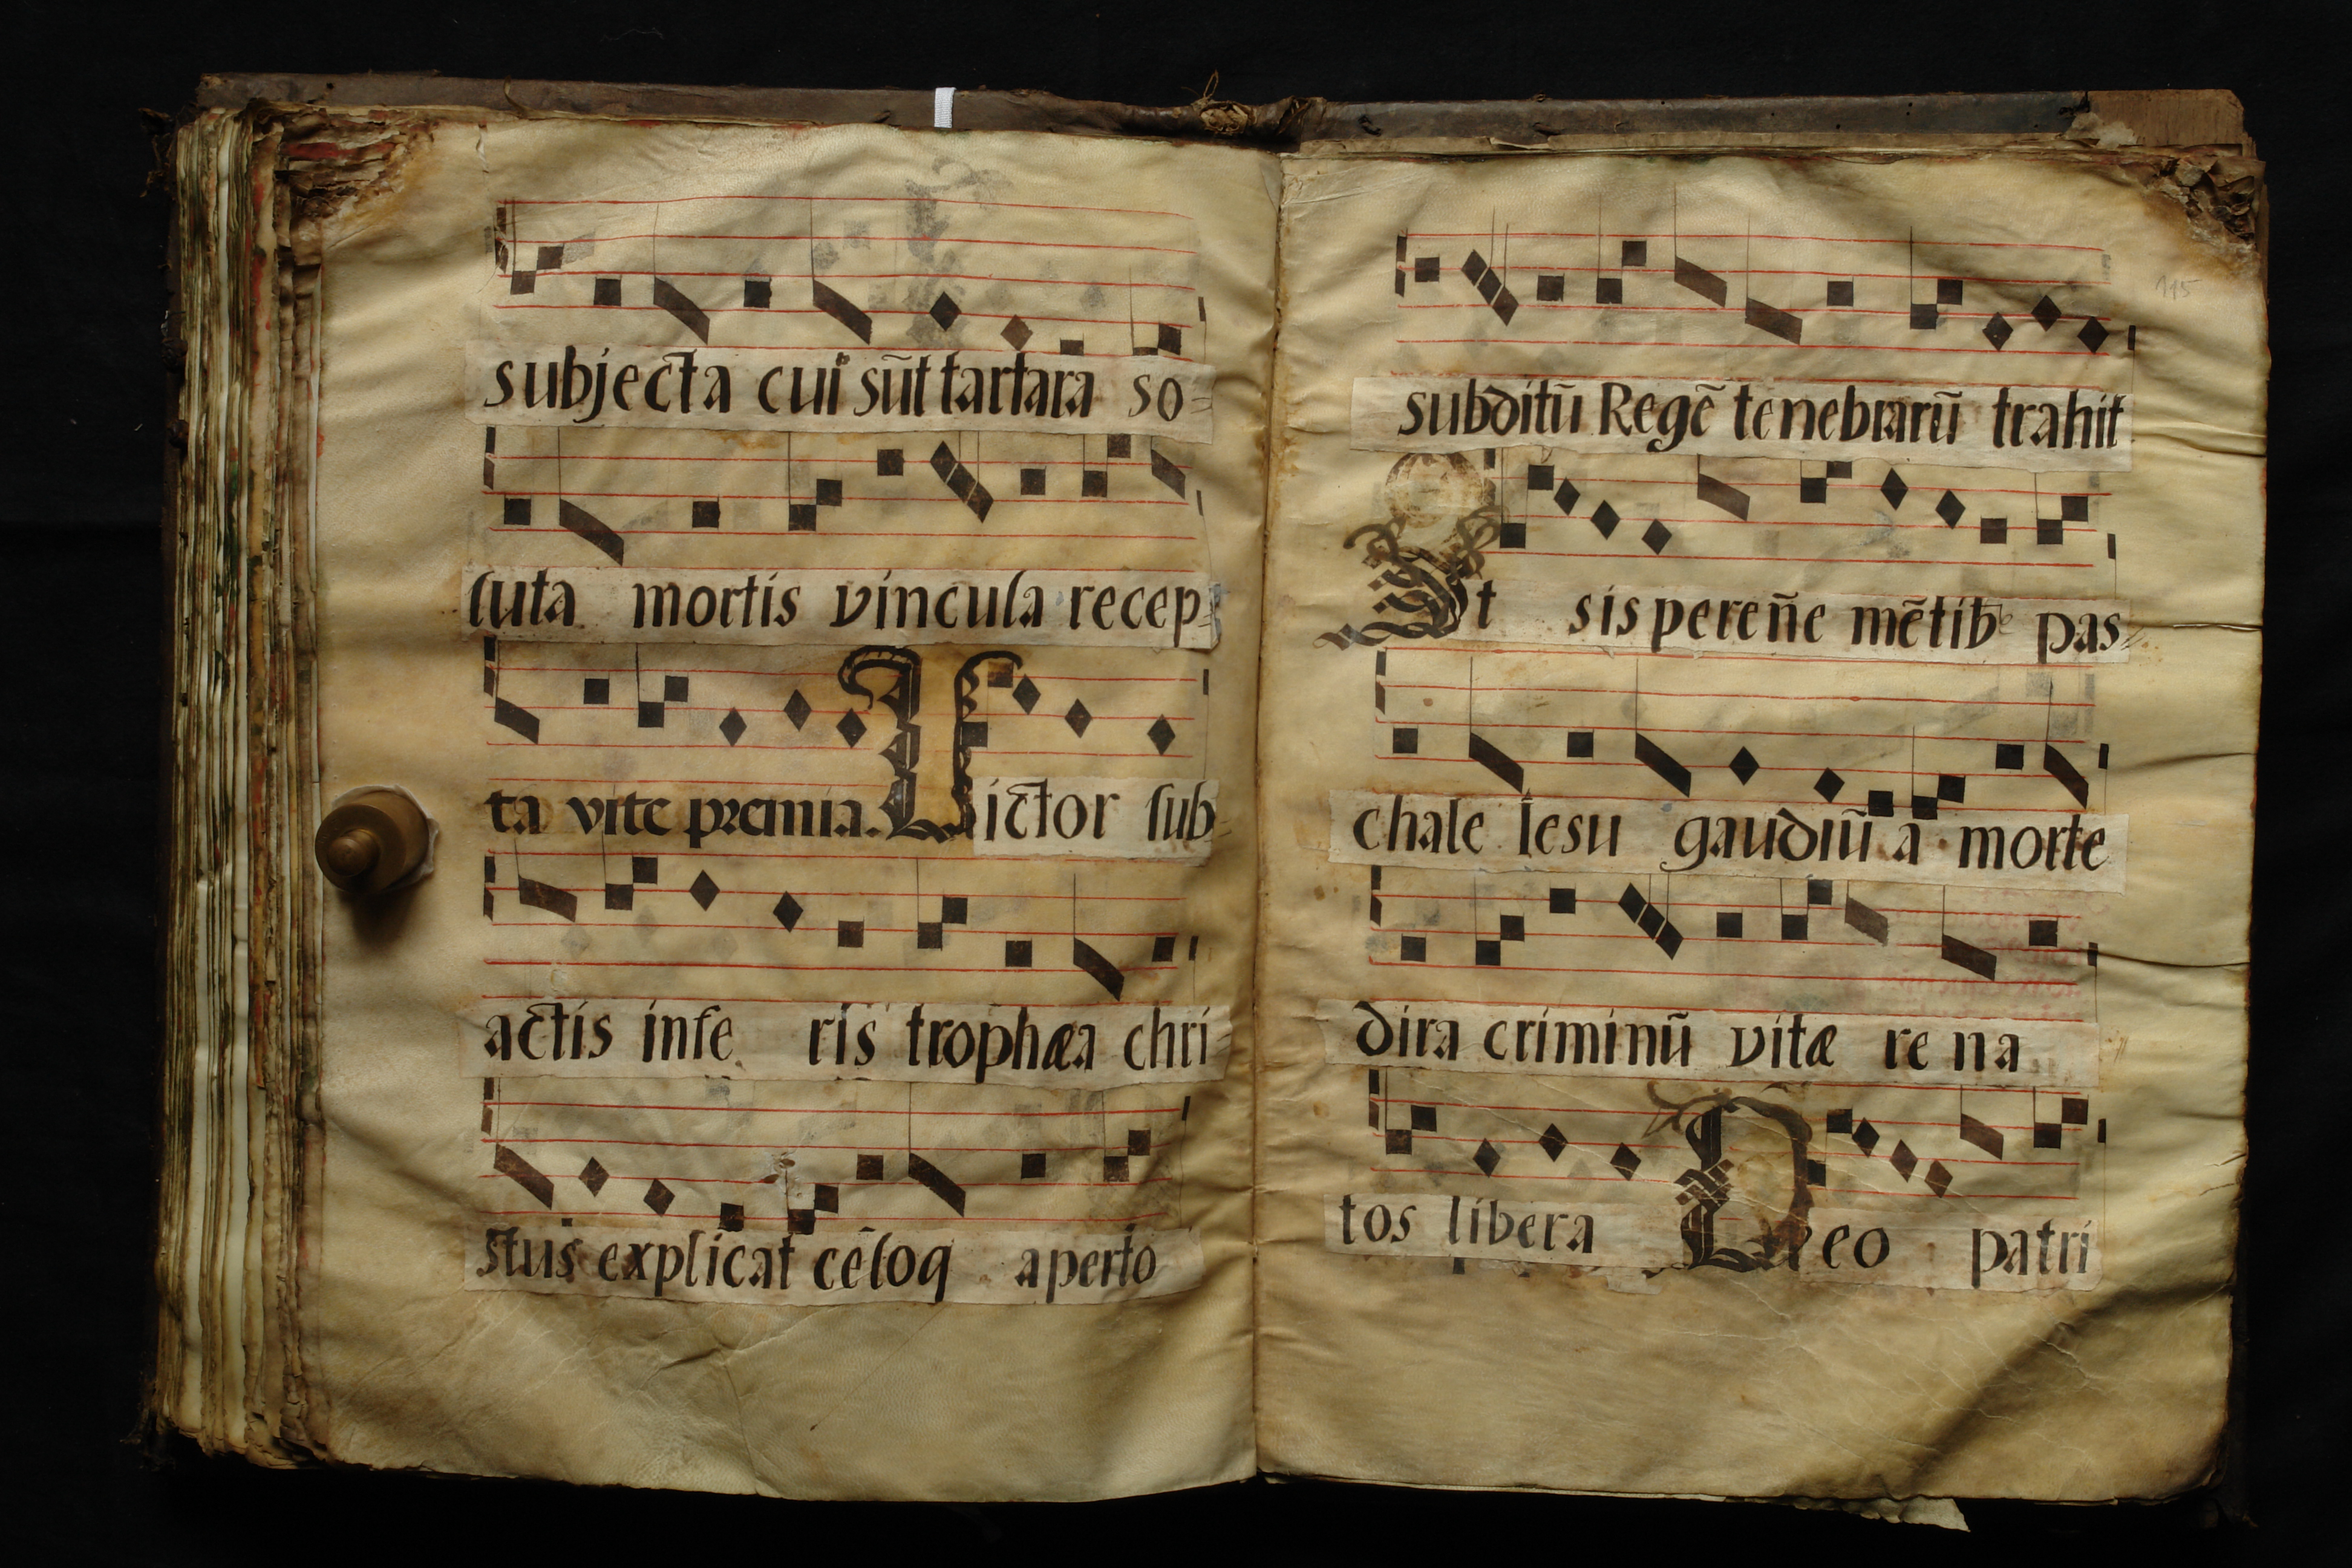 subjecta cui sũt tartara so=
luta mortis vincula recep=
ta vite premia. Victor sub=
actis infe ris trophæa chri=
stus explicat cẽloq aperto
115
subditũ Regẽ tenebrarũ trahit
Ut sis pereñe mẽtib pas=
chale Iesu gaudiũ a morte
dira criminũ vitæ re na
tos libera Deo patri